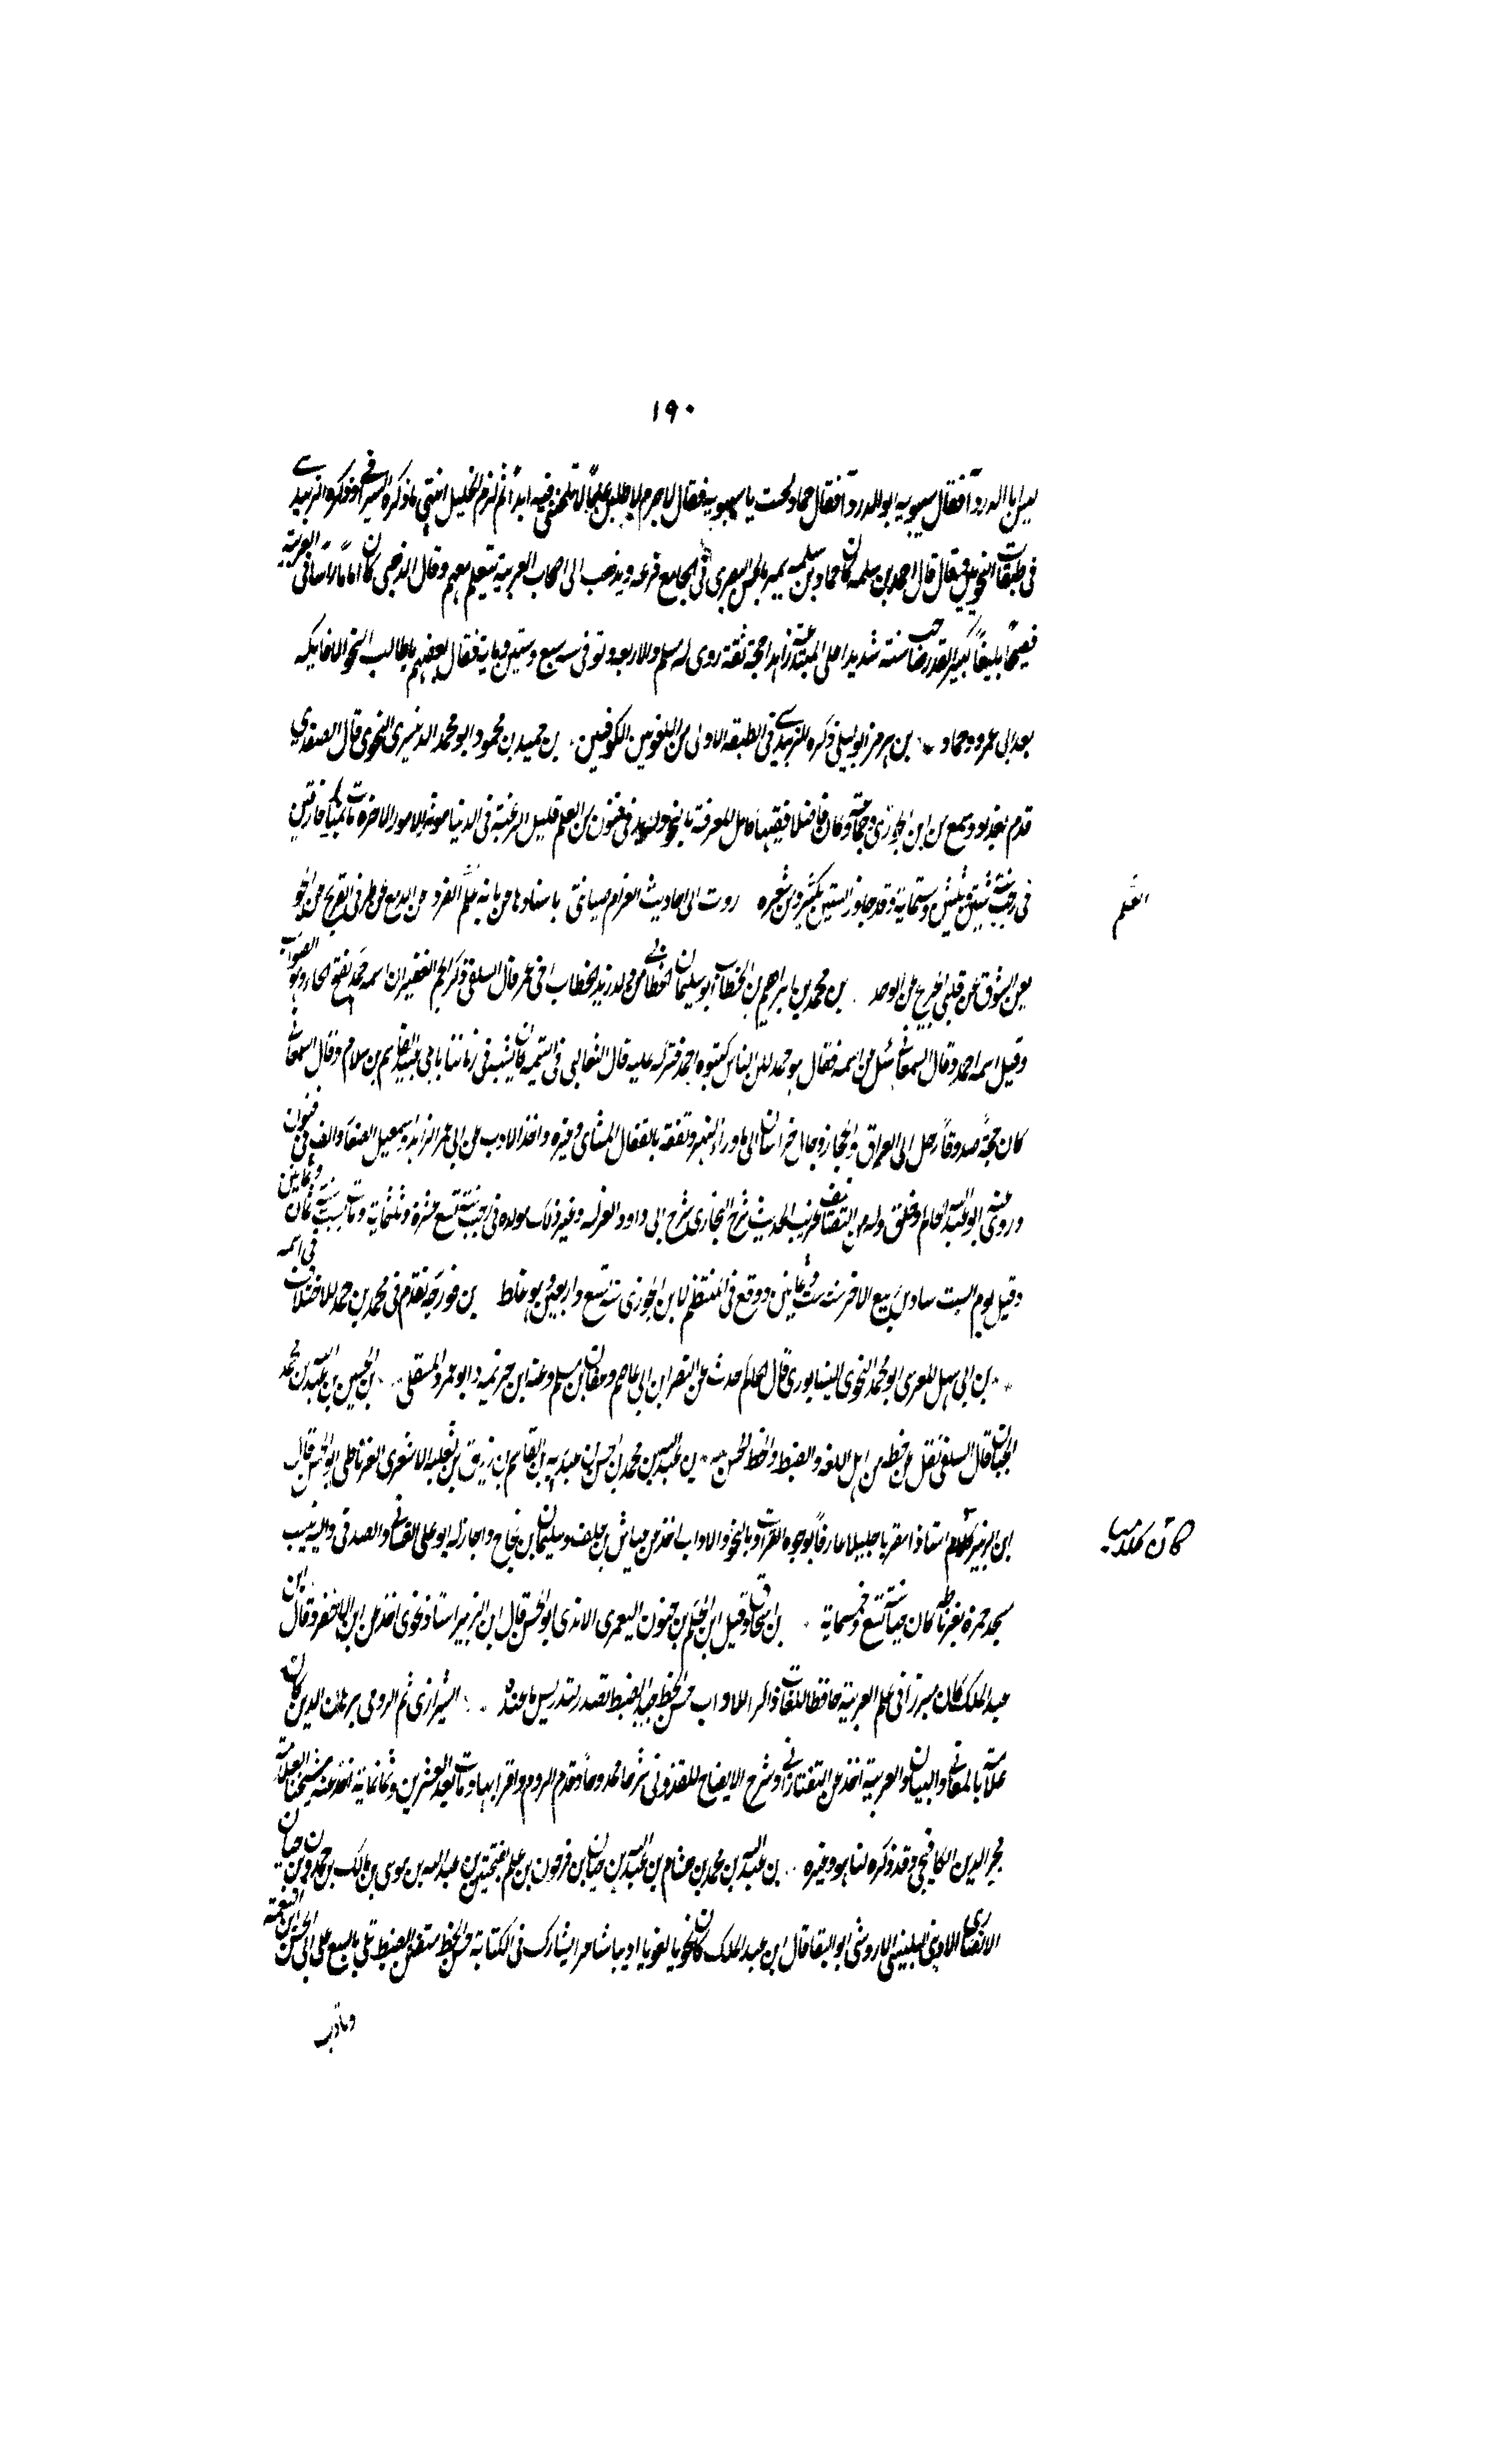 ١٩٠
ليس ابا الدرداء فقال سيبويه ابو الدرداء فقال حماد لحنت يا سيبويه فقال لا جرم لاطلبن علما لا تلحنني فيه ابدا ثم لزم الخليل انتهى ما ذكره السيرافي وذكره الزبيدي
في طبقات النحويين فقال قال احمد بن سلمة كان حماد بن سلمة يمر بالحسن البصري في الجامع فيدعه ويذهب الى اصحاب العربية يتعلم منهم وقال الذهبي كان اماما راسا في العربية
فصيحا بليغا كبير القدر صاحب سنة شديدا على المبتدعة زاهدا حجة ثقة روى له مسلم والاربعة وتوفي سنة سبع وستين وماية فقال بعضهم يا طالب النحو الا فابكه
بعد ابي عمرو وحماد بن هرمز ابو ليلى ذكره الزبيدي في الطبقة الاولى من اللغويين الكوفيين بن حميد بن محمود ابو محمد الدنيسري النحوي قال الصفدي
قدم بغداد وسمع من ابن الجوزي وجماعة وكان فاضلا فقيها كامل المعرفة بالنحو وله يد في فنون من العلم قليل الرغبة في الدنيا مؤثرا لامور الاخرة مات بميافارقين
في رجب سنة ثنتين وثلثين وستماية وقد جاوز الستين بكثير ومن شعره روت لي احاديث الغرام صبابتي باسنادها عن بانة العلم الفرد عن الدمع عن طرفي القريح عن الجوى
العلم
عن الشوق عن قلبي الجريح عن الوجد بن محمد بن ابراهيم بن الخطاب ابو سليمان الخطابي من ولد زيد بن الخطاب اخي عمر قال السلفي ذكر الجم الغفير ان اسمه حمد بفتح الحا وهو الصواب
وقيل اسمه احمد وقال السمعاني سئل عن اسمه فقال هو حمد لكن الناس كتبوه احمد فتركه عليه قال الثعالبي في اليتيمة كان يشبه في زماننا بابي عبيد القاسم بن سلام وقال السمعاني
كان حجة صدوقا رحل الى العراق والحجاز وجال خراسان الى ما وراء النهر وتفقه بالقفال الشاشي وغيره واخذ الادب عن ابي عمر الزاهد واسمعيل الصفار والف في فنون
وروى عنه ابو عبد الله الحاكم وخلق وله من التصانيف غريب الحديث شرح البخاري شرح ابي داود العزلة وغير ذلك مولده في رجب سنة تسع عشرة وثلثماية ومات ببست سنة ثمان وثمانين
وقيل يوم السبت سادس ربيع الاخر سنة ست وثمانين ووقع في المنتظم لابن الجوزي سنة تسع واربعين وهو غلط بن فورجة تقدم في محمد بن حمد للاختلاف في اسمه
بن ابي سهل المعري ابو محمد النحوي النيسابوري قال الحاكم حدث عن النضر ابن ابي عاصم وعفان بن مسلم وعنه ابن خزيمة وابو عمرو المستملي بن الحسين بن عبد الله بن محمد
الجبان قال السلفي نقل عن خطه من اهل اللغة والضبط والخط الحسن بن عبد الله بن محمد بن الحسن بن عبد ربه بن القاسم بن زريق بن ثعلبة الاشعري الغرناطي ابو الحسن قال
ابن الزبير كان استاذا مقريا جليلا عارفا بوجوه القراءت وبالنحو والاداب اخذ عن عياش بن خلف وسليمان بن نجاح واجاز له ابو علي الغساني والصدفي واليه نسب
كان كلاميا
مسجد حمزة بغرناطة كان حيا سنة تسع وخمسماية بن اسحاق وقيل ابن الحكم بن حنون اليعمري الابذي ابو الحسن قال ابن الزبير استاذ نحوي اخذ عن ابن الاخضر وقال ابن
عبد الملك كان مبرزا في علم العربية حافظا للغات ذاكرا للاداب حسن الخط جيد الضبط تصدر لتدريس ما عنده الشيرازي ثم الرومي برهان الدين كان
علامة بالمعاني والبيان والعربية اخذ عن التفتازاني وشرح الايضاح للقزويني شرحا ممدوحا وقدم الروم واقرا بها ومات بعد العشرين وثمانماية اخذ عنه شيخنا العلامة
محيي الدين الكافيجي وقد ذكره لنا هو وغيره بن عبد الله بن محمد بن هشام بن عبد الله بن حيان بن فرحون بن علم بفتحتين بن عبد الله بن موسى بن مالك بن حمدون بن حيان
الانصاري الاوسي البلنسي الاروشي ابو البقا قال ابن عبد الملك كان نحويا لغويا اديبا شاعرا يشارك في الكتابة حسن الخط متقن الضبط تلى بالسبع على ابي الحسن ابن النعمة
وتادب